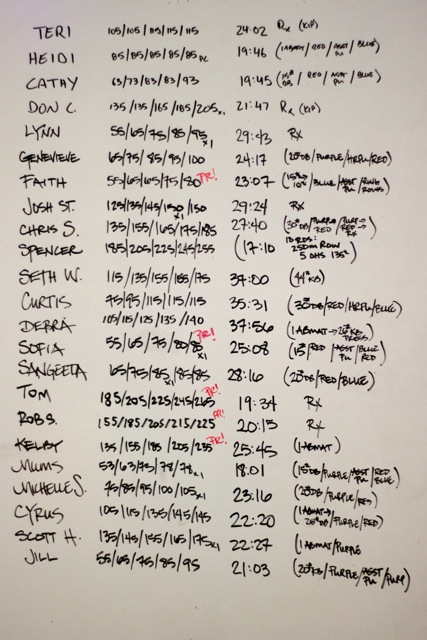 TERI 105/105/115/115/115 24:02 Rx (KIP)
HEIDI 85/85/85/85/85 PC 19:46 (1 ABMAT/RED/ASST PU/BLUE)
CATHY 63/73/83/83/93 19:45 (15# DB/RED/ASST PU/BLUE)
DON C. 135/135/165/185/205 x1 21:47 Rx (KIP)
LYNN 55/65/75/85/95 x1 29:43 Rx
GENEVIEVE 65/75/85/95/100 24:17 (20#DB/PURPLE/HRPU/RED)
FAITH 55/65/65/75/80 PR! 23:07 (15#→10#/BLUE/ASST PU/RING ROWS)
JOSH ST. 125/135/145/150 x1/150 29:24 Rx
CHRIS S. 135/155/165/175/185 27:40 (30#DB/PURPLE/RED→Rx)
SPENCER 185/205/225/245/255 (17:10 10 RDS: 250M ROW 5 OHS 135#)
SETH W. 115/135/155/155/175 37:00 (44#KB)
CURTIS 75/95/115/115/115 35:31 (30#DB/RED/HRPU/BLUE)
DEBRA 105/115/125/135/140 37:56 (1 ABMAT→26#KB PRESS)
SOFIA 55/65/75/80/85 x1 PR! 25:08 (15#/RED/ASST PU/BLUE RED)
SANGEETA 65/75/85 x1/85/85 28:16 (20#DB/RED/BLUE)
TOM 185/205/225/245/265 PR! 19:34 Rx
ROB S. 155/185/205/215/225 PR! 20:15 Rx
KELBY 135/155/185/205/235 PR! 25:45 (1 ABMAT)
MUMS 53/63/73/78/78 x1 18:01 (15#DB/PURPLE/ASST PU/RED BLUE)
MICHELLE S. 75/85/95/100/105 x1 23:16 (20#DB/PURPLE/RED)
CYRUS 105/115/135/145/145 22:20 (1 ABMAT→/25#DB/PURPLE/RED)
SCOTT H. 135/145/155/165/175 x1 22:27 (1 ABMAT/PURPLE
JILL 55/65/75/85/95 21:03 (20#KB/PURPLE/ASST PU/PURP)